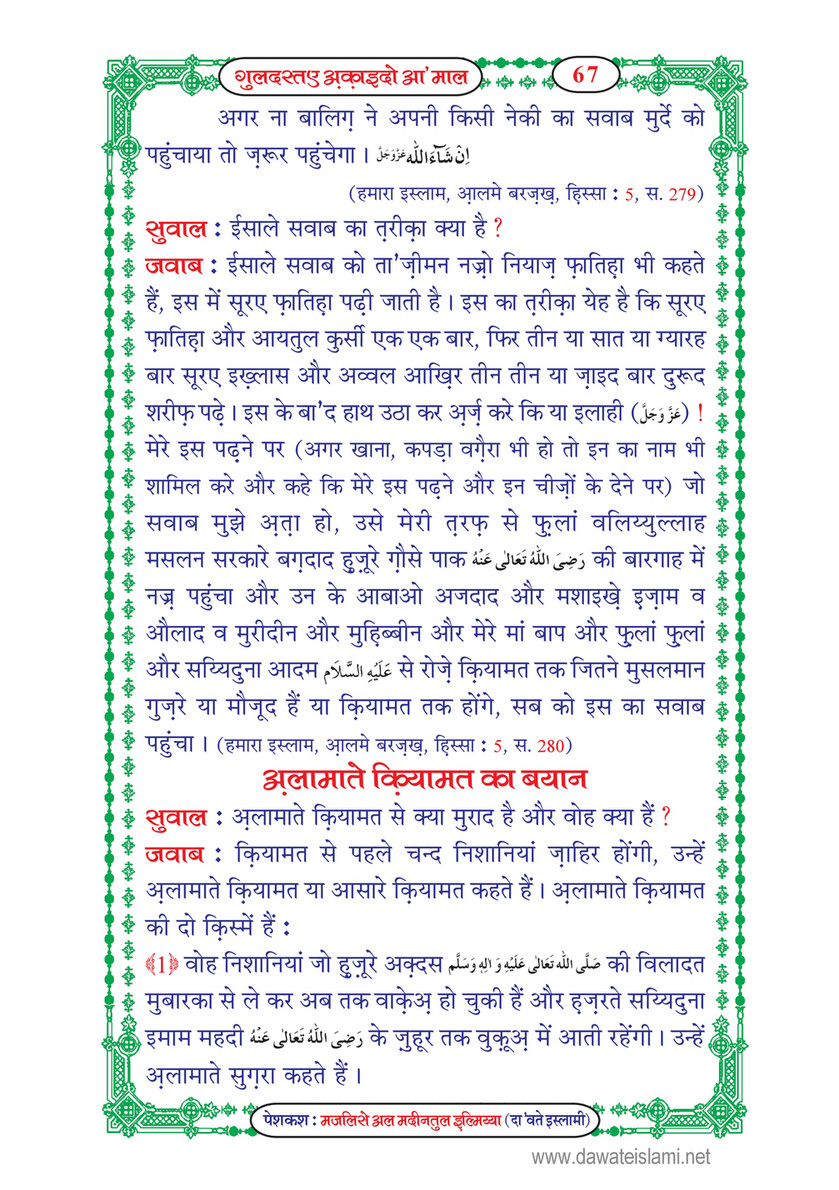 गुलदस्तए अ़क़ाइदो आ'माल
67
अगर ना बालिग़ ने अपनी किसी नेकी का सवाब मुर्दे को
पहुंचाया तो ज़रूर पहुंचेगा । اِنْ شَآءَ اللّٰه عَزَّوَجَلَّ
(हमारा इस्लाम, आ़लमे बरज़ख़, ह़िस्सा : 5, स. 279)
सुवाल : ईसाले सवाब का त़रीक़ा क्या है ?
जवाब : ईसाले सवाब को ता'ज़ीमन नज़्रो नियाज़ फ़ातिह़ा भी कहते
हैं, इस में सूरए फ़ातिह़ा पढ़ी जाती है । इस का त़रीक़ा येह है कि सूरए
फ़ातिह़ा और आयतुल कुर्सी एक एक बार, फिर तीन या सात या ग्यारह
बार सूरए इख़्लास और अव्वल आख़िर तीन तीन या ज़ाइद बार दुरूद
शरीफ़ पढ़े । इस के बा'द हाथ उठा कर अ़र्ज़ करे कि या इलाही (عَزَّ وَجَلَّ) !
मेरे इस पढ़ने पर (अगर खाना, कपड़ा वग़ैरा भी हो तो इन का नाम भी
शामिल करे और कहे कि मेरे इस पढ़ने और इन चीज़ों के देने पर) जो
सवाब मुझे अ़त़ा हो, उसे मेरी त़रफ़ से फ़ुलां वलिय्युल्लाह
मसलन सरकारे बग़दाद हुज़ूरे ग़ौसे पाक رَضِیَ اللّٰهُ تَعَالٰی عَنْهُ की बारगाह में
नज़्र पहुंचा और उन के आबाओ अजदाद और मशाइख़े इज़ाम व
औलाद व मुरीदीन और मुह़िब्बीन और मेरे मां बाप और फ़ुलां फ़ुलां
और सय्यिदुना आदम عَلَیْهِ السَّلَام से रोज़े क़ियामत तक जितने मुसलमान
गुज़रे या मौजूद हैं या क़ियामत तक होंगे, सब को इस का सवाब
पहुंचा । (हमारा इस्लाम, आ़लमे बरज़ख़, ह़िस्सा : 5, स. 280)
अ़लामाते क़ियामत का बयान
सुवाल : अ़लामाते क़ियामत से क्या मुराद है और वोह क्या हैं ?
जवाब : क़ियामत से पहले चन्द निशानियां ज़ाहिर होंगी, उन्हें
अ़लामाते क़ियामत या आसारे क़ियामत कहते हैं । अ़लामाते क़ियामत
की दो क़िस्में हैं :
﴾1﴿ वोह निशानियां जो हुज़ूरे अक़्दस صَلَّی اللّٰه تَعَالٰی عَلَیْهِ وَ اٰلِهٖ وَسَلَّم की विलादत
मुबारका से ले कर अब तक वाक़ेअ़ हो चुकी हैं और ह़ज़रते सय्यिदुना
इमाम महदी رَضِیَ اللّٰهُ تَعَالٰی عَنْهُ के ज़ुहूर तक वुक़ूअ़ में आती रहेंगी । उन्हें
अ़लामाते सुग़रा कहते हैं ।
पेशकश : मजलिसे अल मदीनतुल इल्मिय्या (दा'वते इस्लामी)
www.dawateislami.net